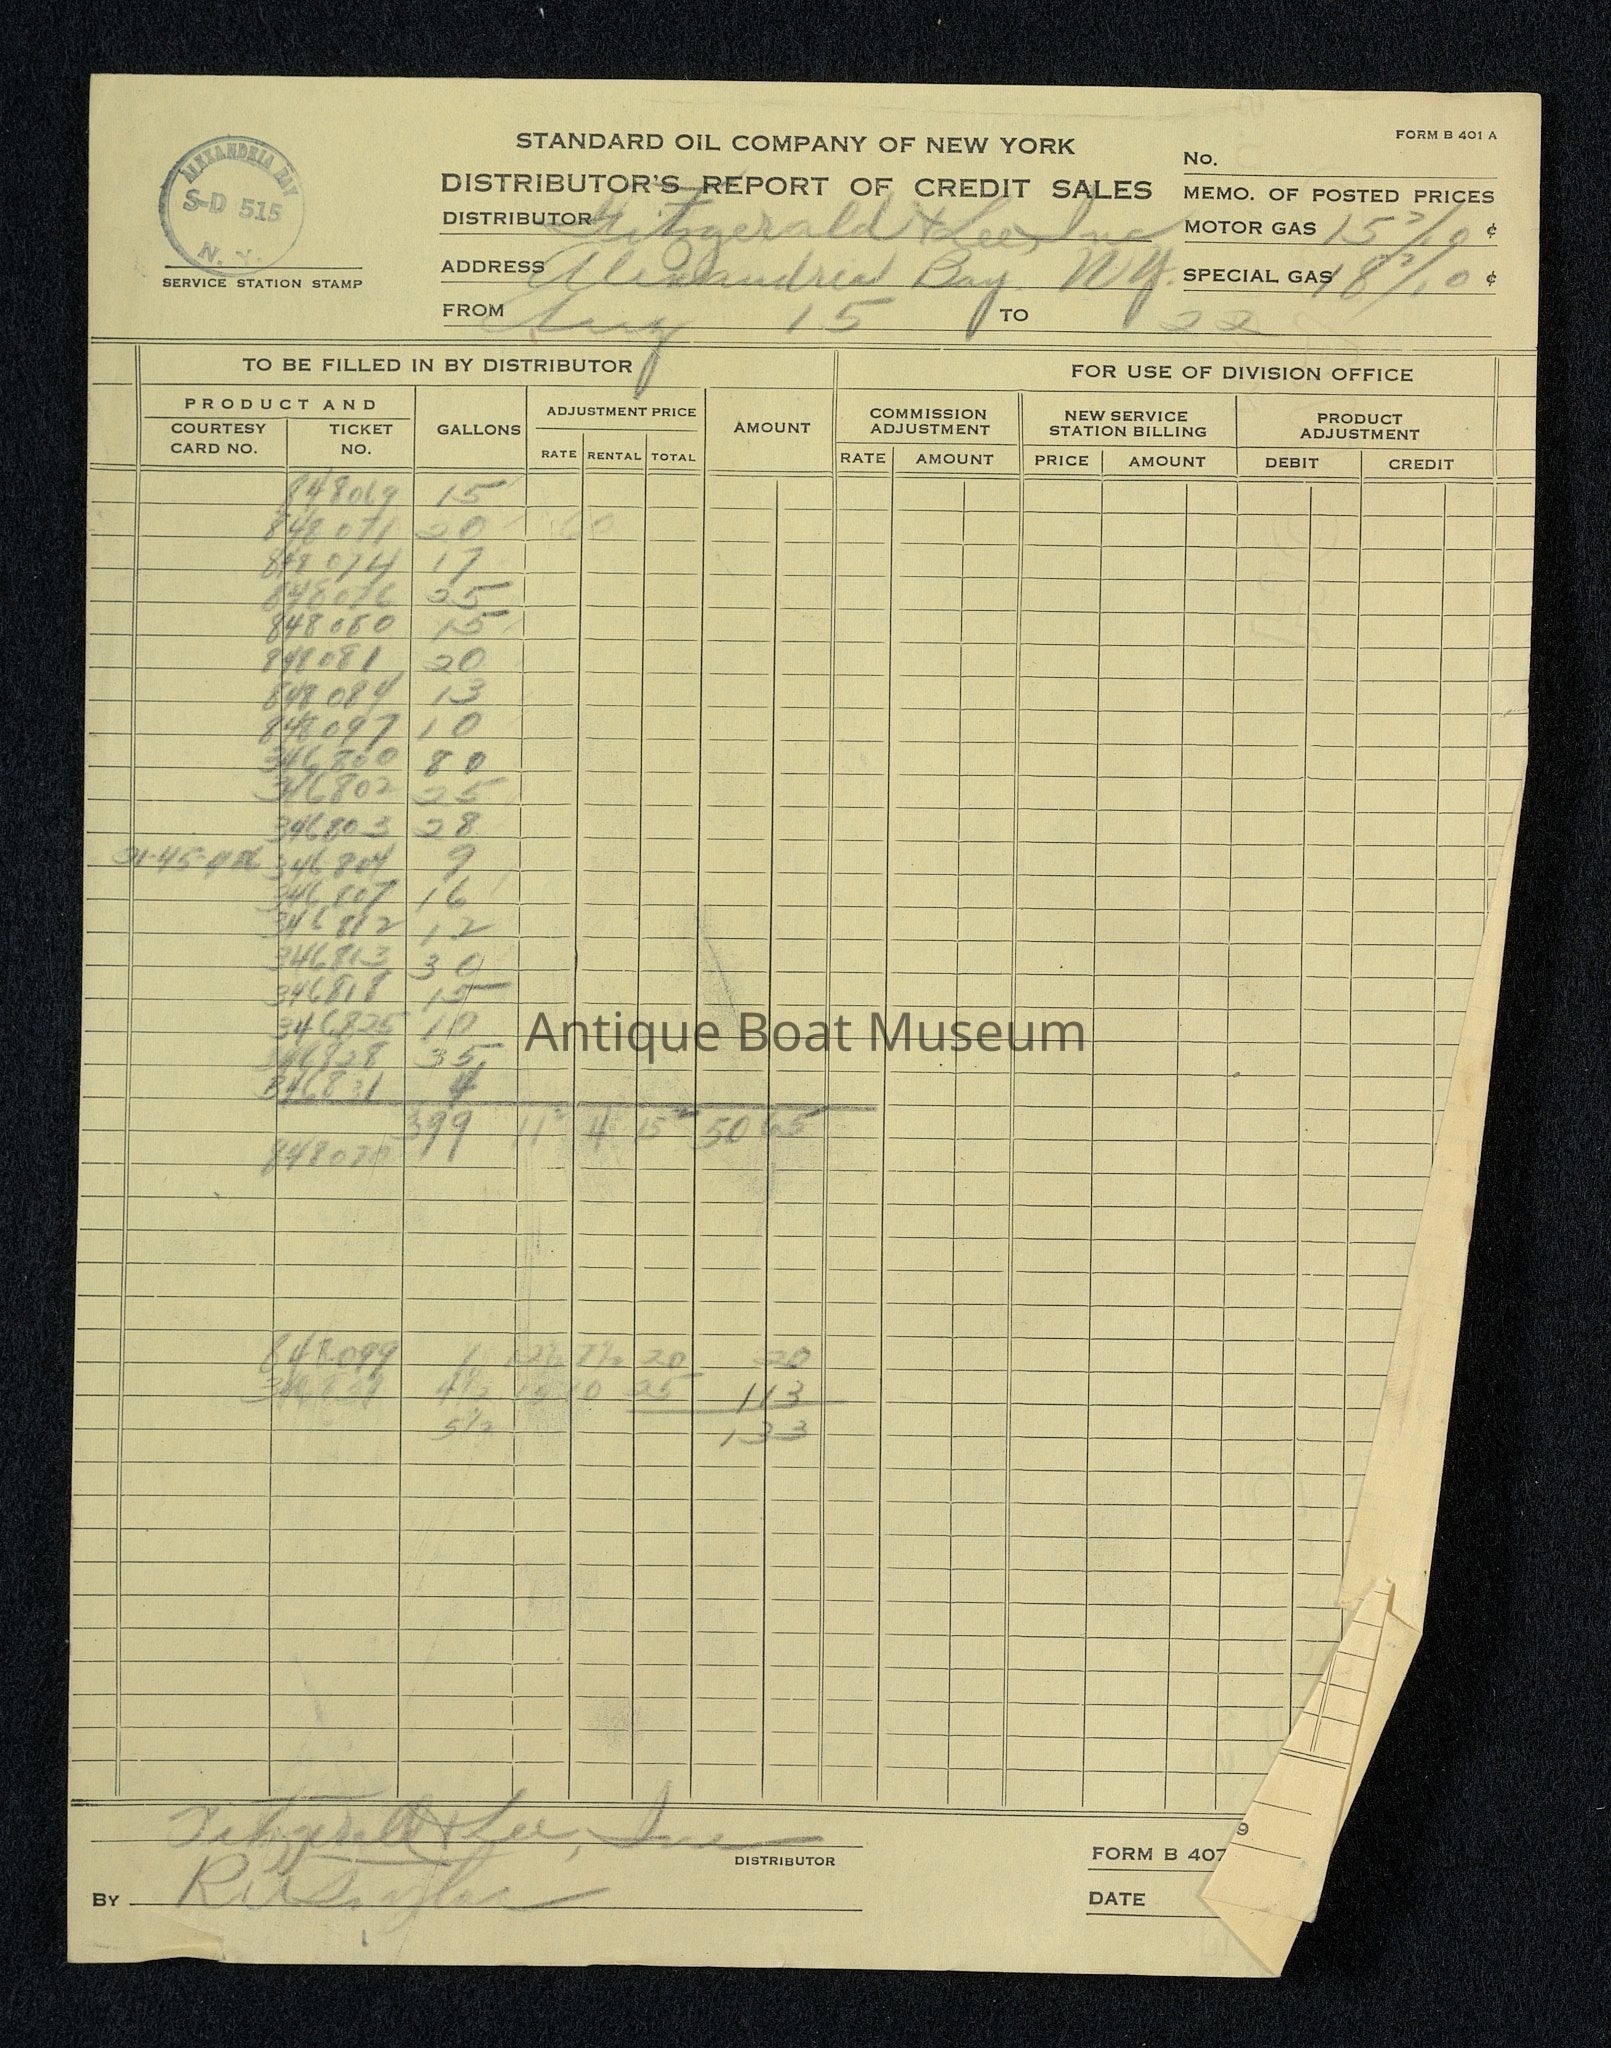 FORM B 401 A
STANDARD OIL COMPANY OF NEW YORK
No.
DISTRIBUTOR'S REPORT OF CREDIT SALES
MEMO. OF POSTED PRICES
ALEXANDRIA BAY
S-D 515
N. Y.
SERVICE STATION STAMP
DISTRIBUTOR Fitzgerald & Lee, Inc
MOTOR GAS 15 2/10 ¢
ADDRESS Alexandria Bay. N.Y.
SPECIAL GAS 18 2/10 ¢
FROM Aug 15 TO 22
TO BE FILLED IN BY DISTRIBUTOR
FOR USE OF DIVISION OFFICE
PRODUCT AND
COURTESY CARD NO.
TICKET NO.
GALLONS
ADJUSTMENT PRICE
RATE RENTAL TOTAL
AMOUNT
COMMISSION ADJUSTMENT
RATE AMOUNT
NEW SERVICE STATION BILLING
PRICE AMOUNT
PRODUCT ADJUSTMENT
DEBIT CREDIT
848069 15
848071 20
848074 17
848076 25
848080 15
848081 20
848084 13
848097 10
346800 80
346802 25
346803 28
346804 9
346807 16
346812 12
346813 30
346818 15
346825 10
346828 35
346831 4
399 11 2 4 15 2 50 65
Antique Boat Museum
848099 1 12½ 7½ 20 20
4½ 15 10 25 113
5½ 133
Fitzgerald & Lee, Inc
DISTRIBUTOR
FORM B 407
9
BY
DATE